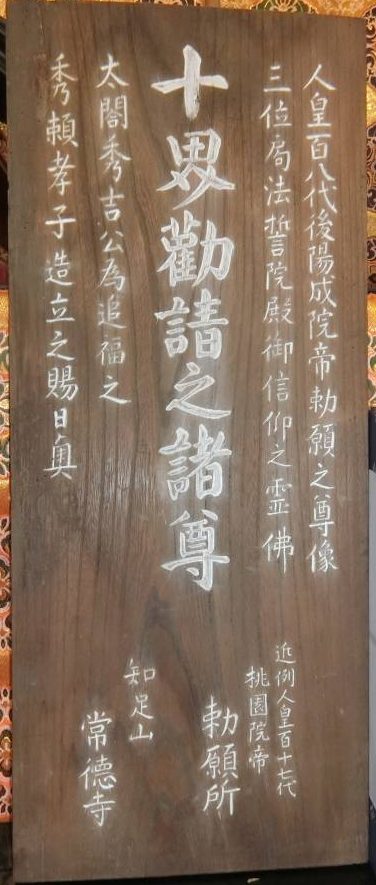 人皇百八代後陽成院帝勅願之尊像
三位局法誓院殿御信仰之霊佛
十界勧請之諸尊
太閤秀吉公為追福之
秀頼孝子造立之賜日奥
近例人皇百十七代
桃園院帝
勅願所
知足山
常徳寺